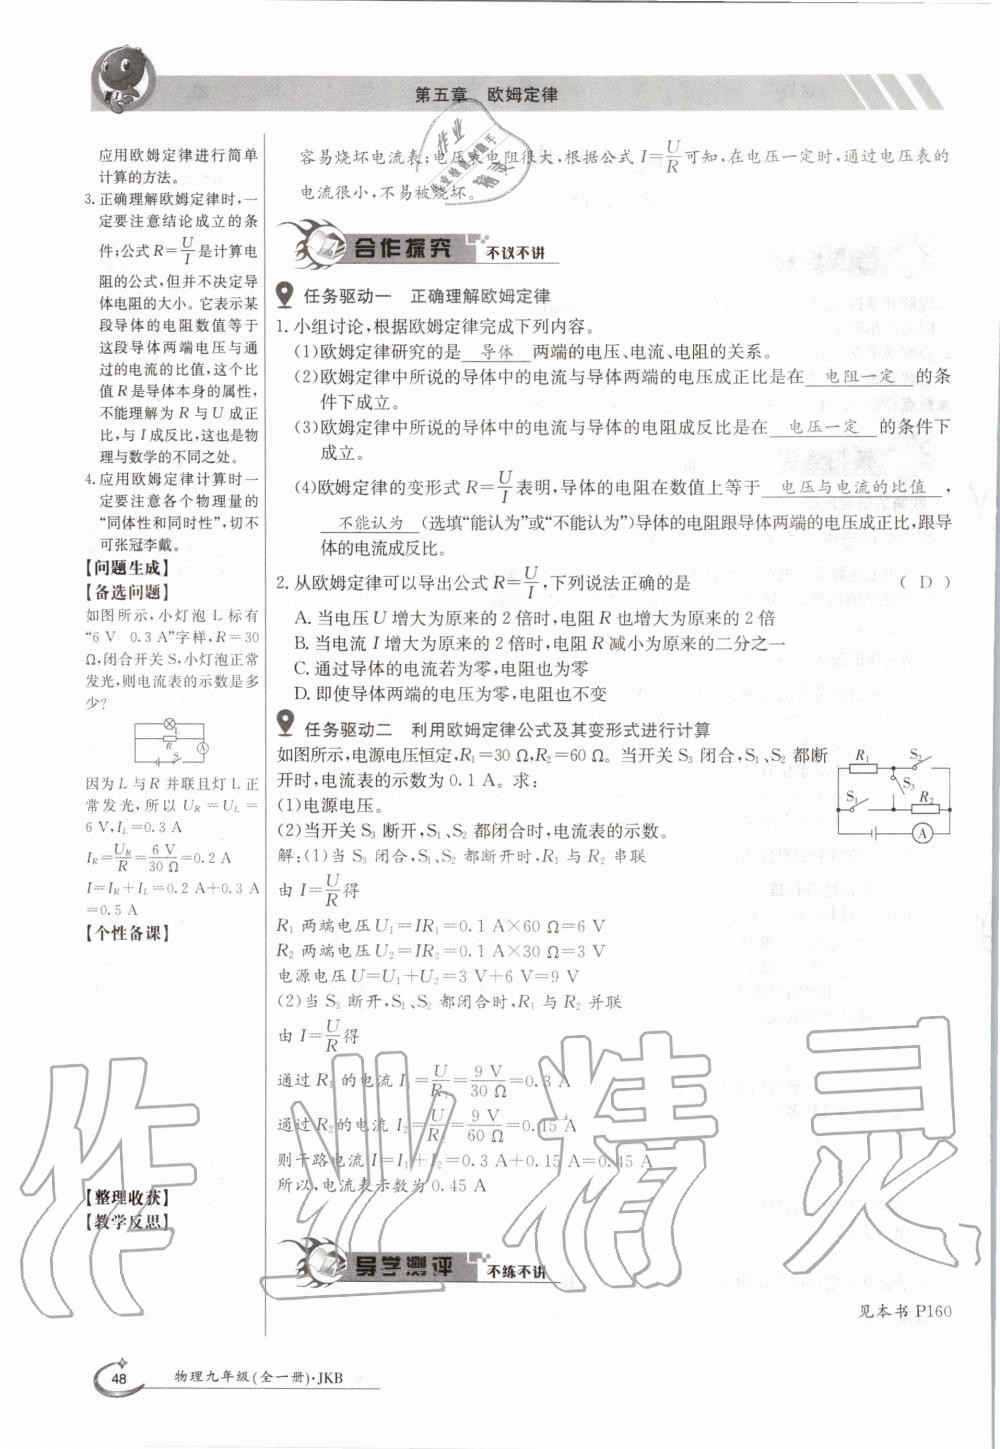 第五章 欧姆定律
应用欧姆定律进行简单
计算的方法。
3. 正确理解欧姆定律时,一
定要注意结论成立的条
件;公式 R=U/I 是计算电
阻的公式,但并不决定导
体电阻的大小。它表示某
段导体的电阻数值等于
这段导体两端电压与通
过的电流的比值,这个比
值 R 是导体本身的属性,
不能理解为 R 与 U 成正
比,与 I 成反比,这也是物
理与数学的不同之处。
4. 应用欧姆定律计算时一
定要注意各个物理量的
“同体性和同时性”,切不
可张冠李戴。
【问题生成】
【备选问题】
如图所示,小灯泡 L 标有
“6 V 0.3 A”字样,R=30
Ω,闭合开关 S,小灯泡正常
发光,则电流表的示数是多
少?
L
R
A
S
因为 L 与 R 并联且灯 L 正
常发光,所以 U_R=U_L=
6 V,I_L=0.3 A
I_R=U_R/R=6 V/30 Ω=0.2 A
I=I_R+I_L=0.2 A+0.3 A
=0.5 A
【个性备课】
【整理收获】
【教学反思】
容易烧坏电流表;电压表电阻很大,根据公式 I=U/R 可知,在电压一定时,通过电压表的
电流很小,不易被烧坏。
合作探究 不议不讲
任务驱动一 正确理解欧姆定律
1. 小组讨论,根据欧姆定律完成下列内容。
(1)欧姆定律研究的是 导体 两端的电压、电流、电阻的关系。
(2)欧姆定律中所说的导体中的电流与导体两端的电压成正比是在 电阻一定 的条
件下成立。
(3)欧姆定律中所说的导体中的电流与导体的电阻成反比是在 电压一定 的条件下
成立。
(4)欧姆定律的变形式 R=U/I 表明,导体的电阻在数值上等于 电压与电流的比值 ,
不能认为 (选填“能认为”或“不能认为”)导体的电阻跟导体两端的电压成正比,跟导
体的电流成反比。
2. 从欧姆定律可以导出公式 R=U/I,下列说法正确的是 ( D )
A. 当电压 U 增大为原来的 2 倍时,电阻 R 也增大为原来的 2 倍
B. 当电流 I 增大为原来的 2 倍时,电阻 R 减小为原来的二分之一
C. 通过导体的电流若为零,电阻也为零
D. 即使导体两端的电压为零,电阻也不变
任务驱动二 利用欧姆定律公式及其变形式进行计算
如图所示,电源电压恒定,R₁=30 Ω,R₂=60 Ω。当开关 S₃ 闭合,S₁、S₂ 都断
开时,电流表的示数为 0.1 A。求:
(1)电源电压。
(2)当开关 S₃ 断开,S₁、S₂ 都闭合时,电流表的示数。
R₁ S₂
S₃
S₁ R₂
A
解:(1)当 S₃ 闭合,S₁、S₂ 都断开时,R₁ 与 R₂ 串联
由 I=U/R 得
R₁ 两端电压 U₁=IR₁=0.1 A×60 Ω=6 V
R₂ 两端电压 U₂=IR₂=0.1 A×30 Ω=3 V
电源电压 U=U₁+U₂=3 V+6 V=9 V
(2)当 S₃ 断开,S₁、S₂ 都闭合时,R₁ 与 R₂ 并联
由 I=U/R 得
通过 R₁ 的电流 I₁=U/R₁=9 V/30 Ω=0.3 A
通过 R₂ 的电流 I₂=U/R₂=9 V/60 Ω=0.15 A
则干路电流 I=I₁+I₂=0.3 A+0.15 A=0.45 A
所以,电流表示数为 0.45 A
导学测评 不练不讲
见本书 P160
48 物理九年级(全一册)·JKB
作业精灵